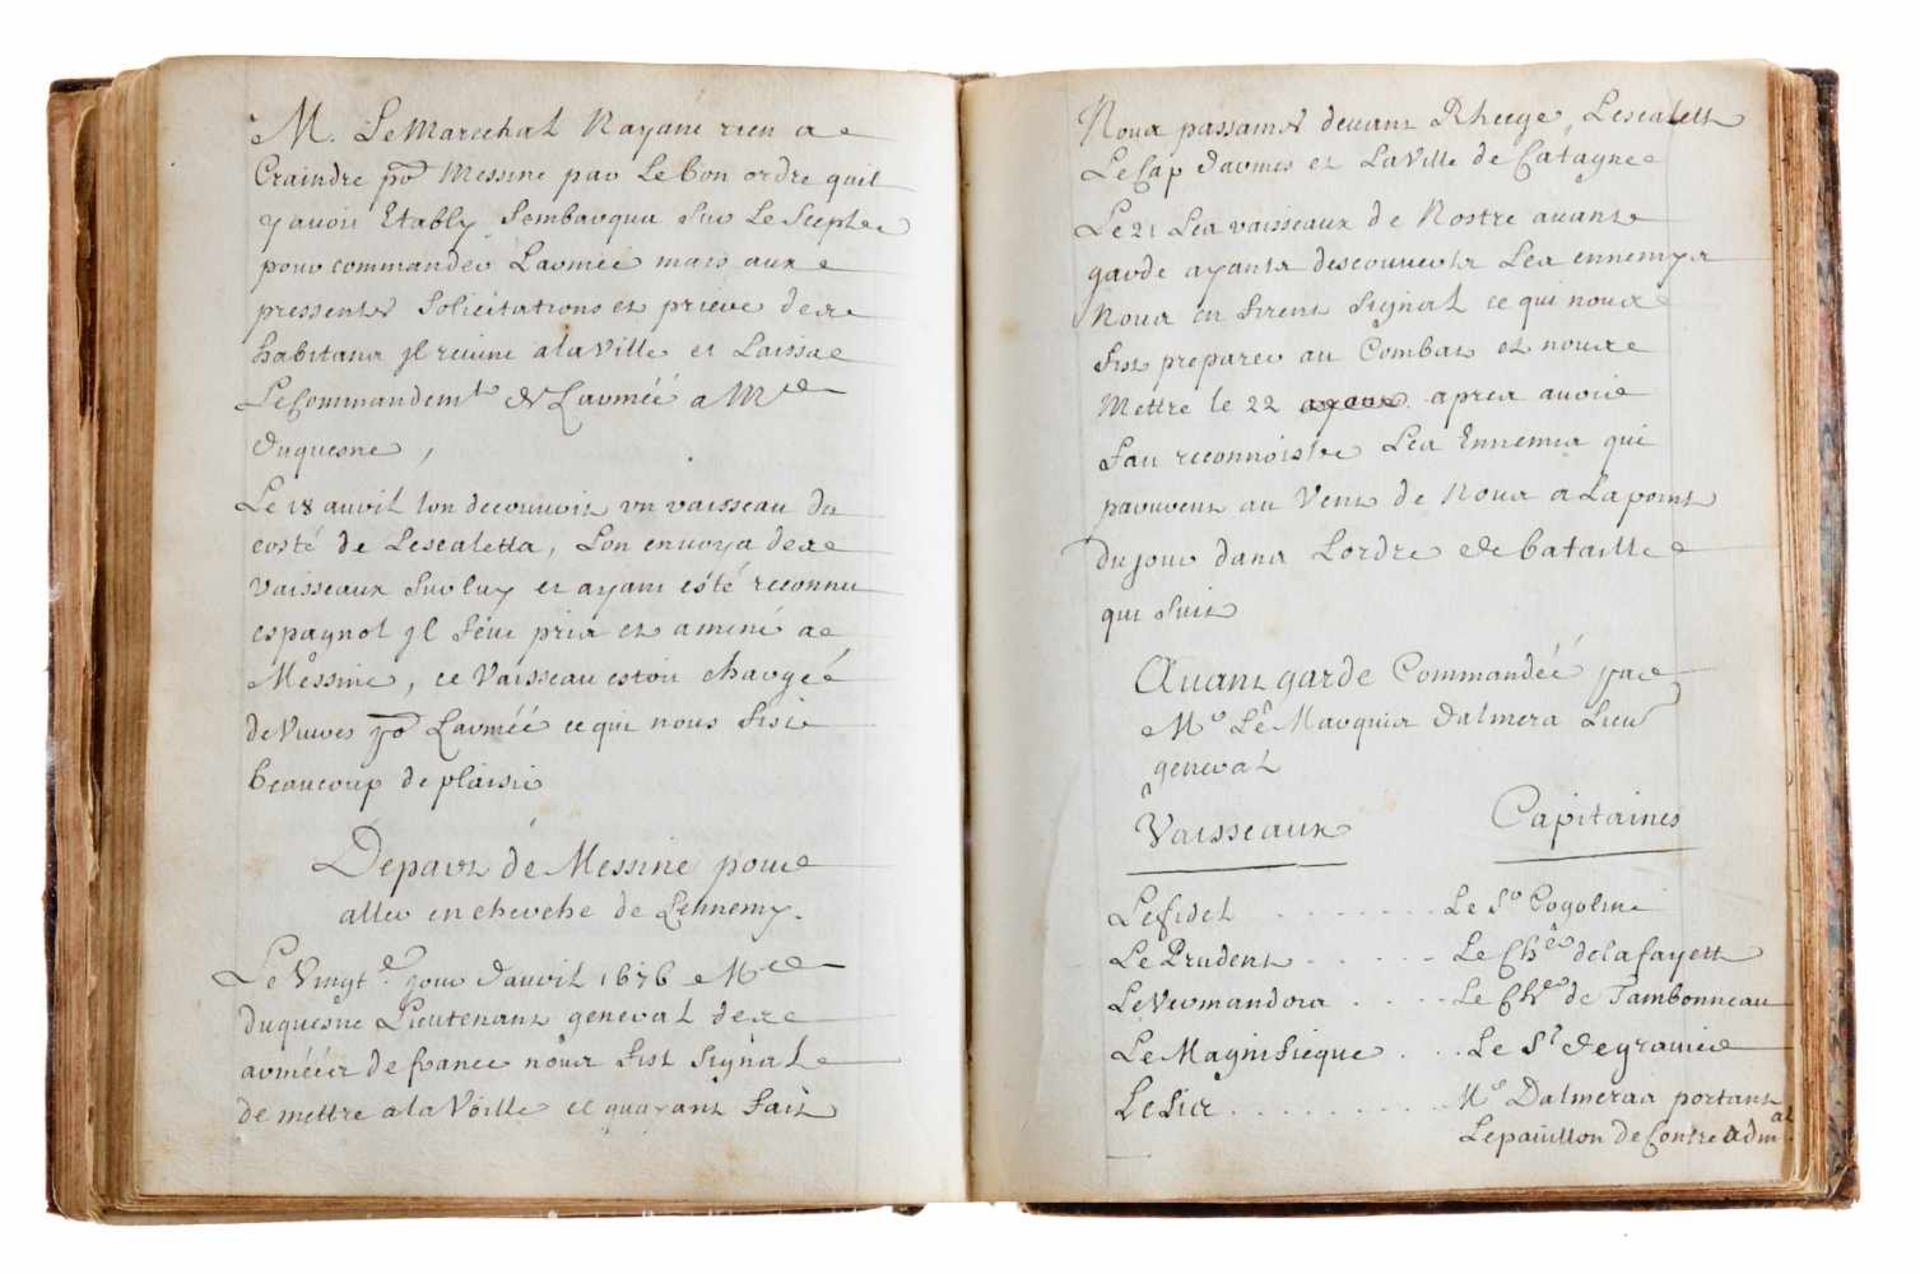 M. Le Marechal Nayant rien a
Craindre po.r Messine par Le bon ordre quil
y avoit Etably Sembarqua Sur Le Sceptre
pour commander Larmée mais aux
pressentes Solicitations et priere des
habitans Jl revint a la Ville et Laissa
Le Commandem.t de Larméé a M.r
duquesne,
Le 18 avril lon decouvrit un vaisseau du
costé de Lescaletta, Lon envoya des
vaisseaux Sur luy et ayant esté reconnu
espagnol Jl feut pris et amené a
Messine, ce Vaisseau estoit chargéé
de Vivres po.r Larméé ce qui nous fist
beaucoup de plaisir
Depart de Messine pour
aller en cherche de Lennemy.
Le Vingt.e jour davril 1676 M.r
duquesne Lieutenant general des
arméés de france nous fist Signal
de mettre a la Voille ce quayant fait
Nous passames devant Rhege, Lescalette
Le Cap darmes et La Ville de Catagne
Le 21 Les vaisseaux de Nostre avant
garde ayants descouverts Les ennemys
Nous en firent Signal ce qui nous
fist preparer au Combat et nous
Mettre le 22 apres avoir
fait reconnoistre Les Ennemis qui
parurent au Vent de Nous a La point
du jour dans Lordre de bataille
qui Suit
Avant garde Commandéé par
M.r Le Marquis dalmera Lieu.t
general
Vaisseaux Capitaines
Le fidel . . . . . . . Le S.r Cogolin
Le Prudent . . . . . Le Ch.er de la fayette
Le Vermandois . . . . Le Ch.er de Tambonneau
Le Magnifique . . . Le S.r de gravier
Le Lis . . . . . . . . . M.r Dalmeras portant
Le pavillon de Contre adm.al